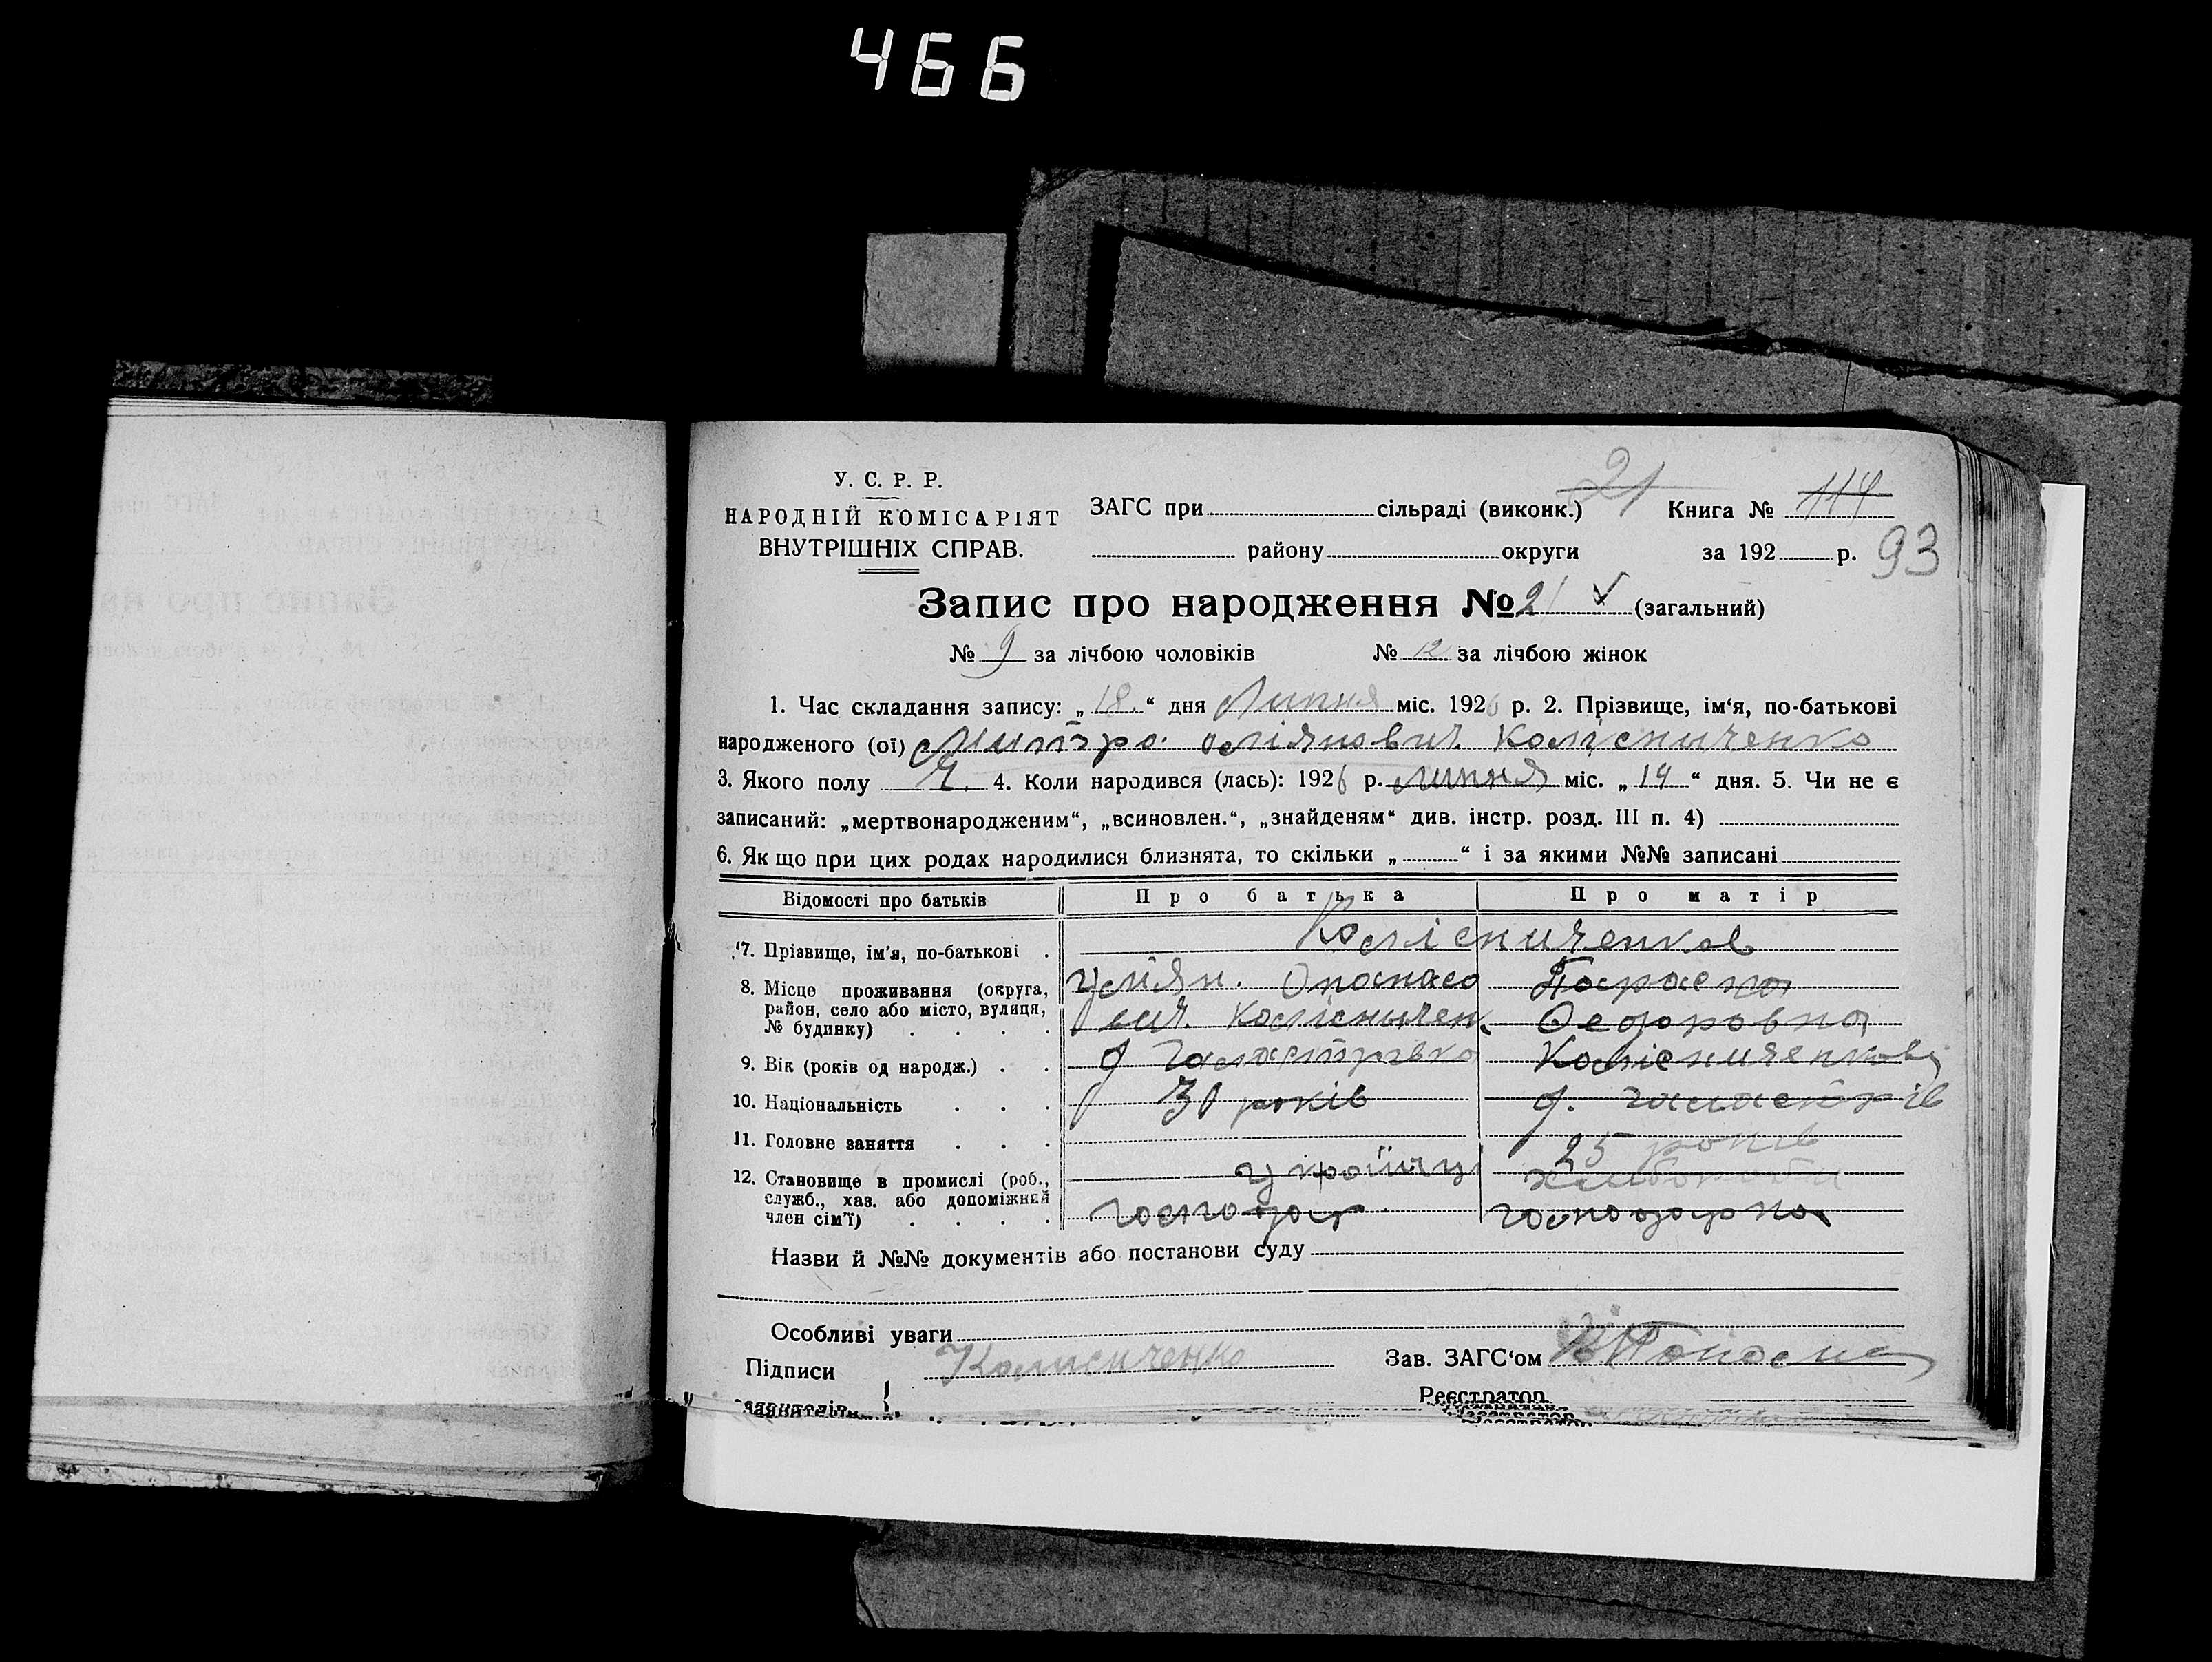 466
У. С. Р. Р.
НАРОДНІЙ КОМІСАРІЯТ
ВНУТРІШНІХ СПРАВ.
ЗАГС при сільраді (виконк.) 21 Книга № 114
району округи за 192 р. 93
Запис про народження № 21 (загальний)
№ 9 за лічбою чоловіків № 12 за лічбою жінок
1. Час складання запису: „18.“ дня Липня міс. 1926 р. 2. Прізвище, ім‘я, по-батькові
народженого (ої) Митро Колісниченко
3. Якого полу Ч. 4. Коли народився (лась): 1926 р. липня міс. „14“ дня. 5. Чи не є
записаний: „мертвонародженим“, „всиновлен.“, „знайденям“ див. інстр. розд. III п. 4)
6. Як що при цих родах народилися близнята, то скільки „ “ і за якими №№ записані
Відомості про батьків Про батька Про матір
7. Прізвище, ім'я, по-батькові . Колісниченков
8. Місце проживання (округа, Опанасо Параска
район, село або місто, вулиця, вич. Колісничен. Федоровна
№ будинку) . . . .
9. Вік (років од народж.) . . Колісниченкова
10. Національність . . . 30 років
11. Головне заняття . . . 25 років
12. Становище в промислі (роб., українці хлібороби
служб., хаз. або допоміжний
член сім'ї) . . . . господар господарка
Назви й №№ документів або постанови суду
Особливі уваги
Підписи Зав. ЗАГС‘ом
заявителів Реєстратор